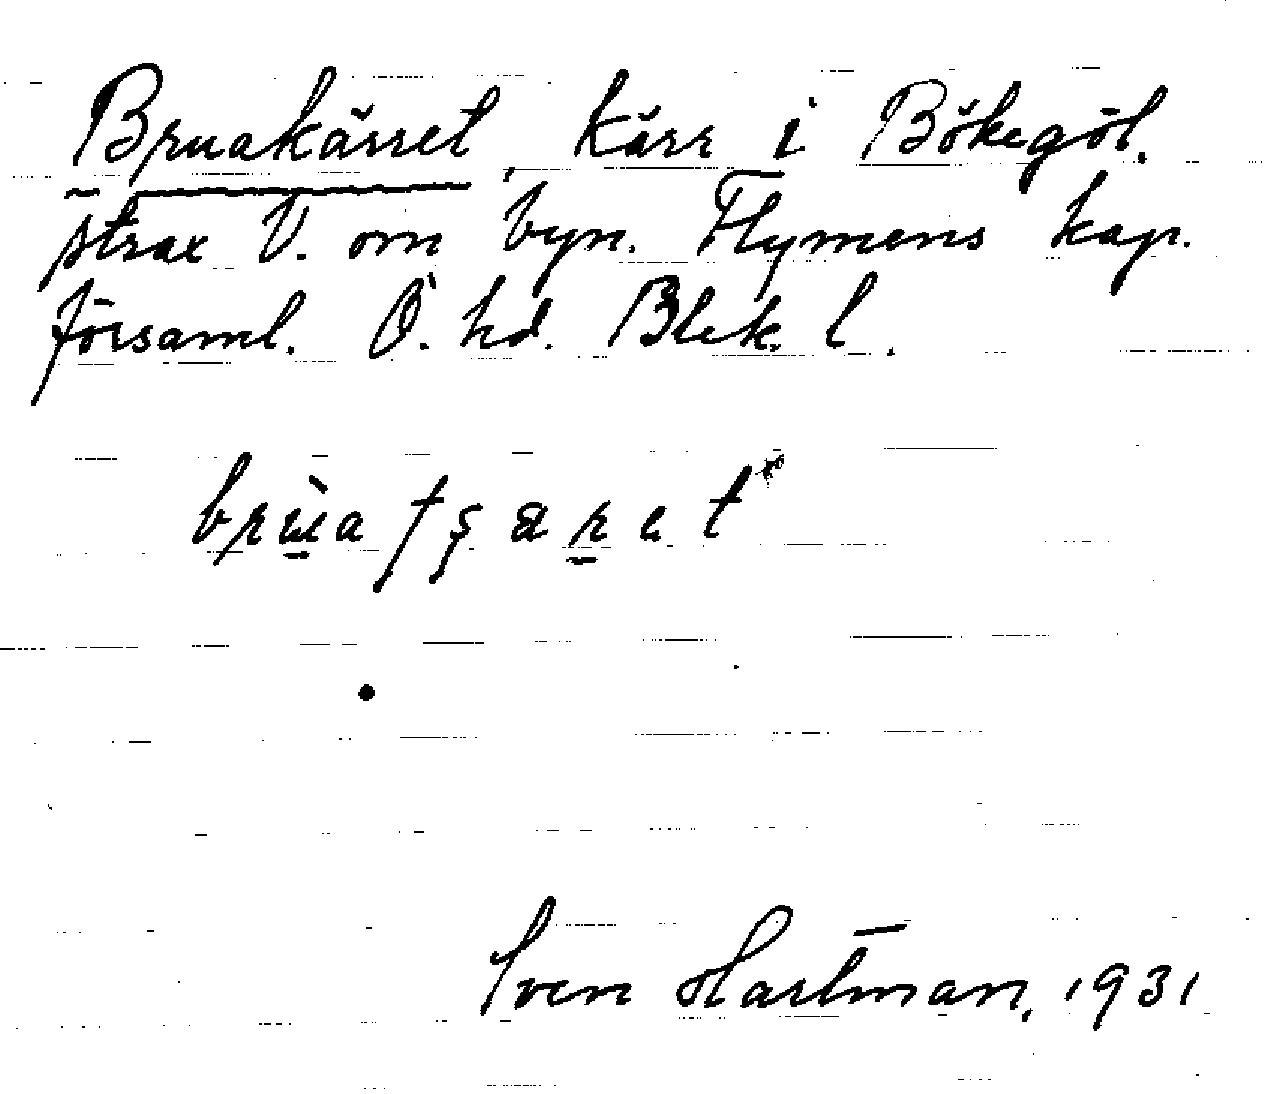 Bruakärret, kärr i Bökegöl.
strax V. om byn. Flymens kap.
församl. Ö. hd. Blek. l.
Sven Hartman, 1931